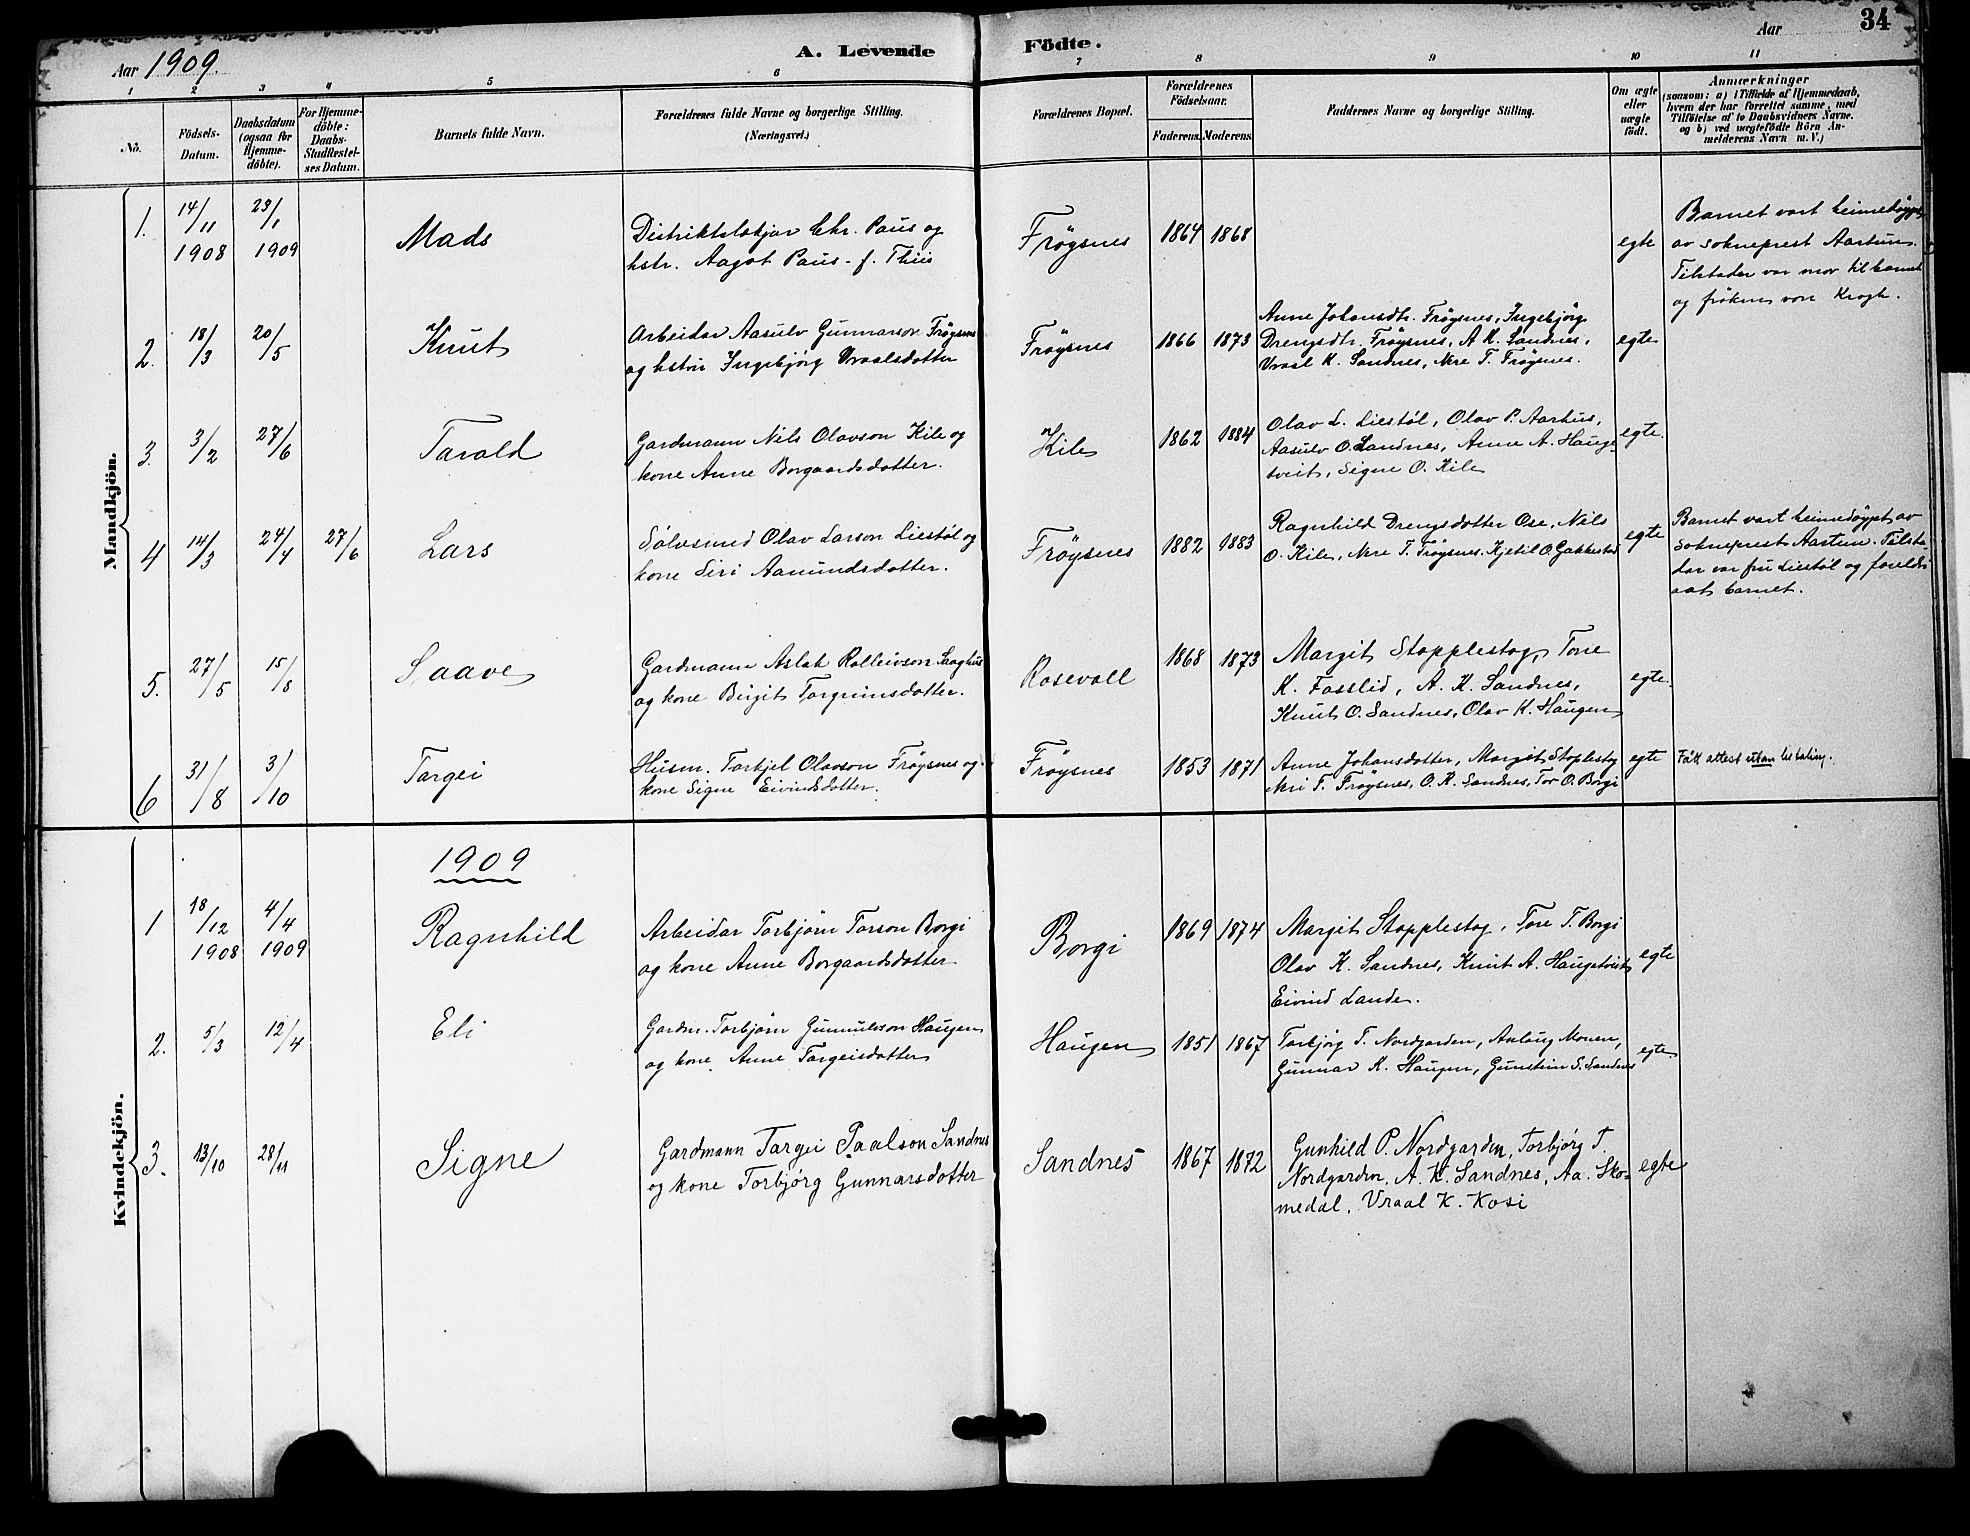 34
Aar 1909.
A. Levende Födte.
Aar
1 2 3 4 5 6 7 8 9 10 11
No.
Födsels-Datum.
Daabsdatum (ogsaa for Hjemme-döbte).
For Hjemme-döbte: Daabs-Stadfæstel-ses Datum.
Barnets fulde Navn.
Forældrenes fulde Navne og borgerlige Stilling. (Næringsvei.)
Forældrenes Bopæl.
Forældrenes Födselsaar.
Faderens. Moderens.
Faddernes Navne og borgerlige Stilling.
Om ægte eller uægte födt.
Anmærkninger
(saasom: a) i Tilfælde af Hjemmedaab,
hvem der har forrettet samme, med
Tilföielse af to Daabsvidners Navne.
og b) ved uægtefödte Börn An-
melderens Navn m.V.)
Mandkjön.
1. 14/11 1908 23/1 1909
Mads
Distriktslækjar Chr. Paus og
hstr. Aagot Paus - f. Thiis
Frøysnes 1864 1868
egte
Barnet vart heimedøypt
av sokneprest Aartun.
Tilstader var mor til barnet
og frøken von Krogh.
2. 18/3 20/5
Knut
Arbeidar Aasulv Gunnarson Frøysnes
og hstru Ingebjørg Vraalsdotter
Frøysnes 1866 1873
Anne Johansdtr. Frøysnes, Ingebjørg
Drengsdtr. Frøysnes, A. K. Sandnes,
Vraal K. Sandnes, Nere T. Frøysnes.
egte
3. 3/2 27/6
Tarald
Gardmann Nils Olavson Kile og
kone Anne Borgaardsdotter.
Kile 1862 1884
Olav L. Liestøl, Olav P. Aarhus,
Aasulv O. Sandnes, Anne A. Haugs-
tveit, Signe O. Kile
egte.
4 14/3 24/4 27/6
Lars
Sølvsmed Olav Larson Liestøl og
kone Siri Aamundsdotter.
Frøysnes 1882 1883
Ragnhild Drengsdotter Ose, Nils
O. Kile, Nere T. Frøysnes, Kjetil O. Gakkestad
egte
Barnet vart heimedøypt av
sokneprest Aartun. Tilsta-
dar var fru Liestøl og foreldri
aat barnet.
5. 27/5 15/8
Saave
Gardmann Aslak Rolleivson
og kone Birgit Torgrimsdotter.
Rosevoll 1868 1873
Margit Stopplestog, Tone
K. Fosslid, A. K. Sandnes,
Knut O. Sandnes, Olav K. Haugen
egte.
6 31/8 3/10
Targei
Husm. Torkjel Olavson Frøysnes og
kone Signe Eivindsdotter.
Frøysnes 1853 1871
Anne Johansdotter, Margit Stoplestog
Neri T. Frøysnes, O. K. Sandnes, Tor O. Borgi
egte
Fått attest utan betaling.
Kvindekjön.
1909
1 18/12 1908 4/4 1909
Ragnhild
Arbeidar Torbjørn Torson Borgi
og kone Anne Borgaardsdotter
Borgi 1869 1874
Margit Stopplestog, Tore T. Borgi
Olav K. Sandnes, Knut A. Haugstveit,
Eivind Lande.
egte
2. 5/3 12/4
Eli
Gardm. Torbjørn Gunnulvson Haugen
og kone Anne Targeisdotter
Haugen 1851 1867
Torbjørg T. Nordgarden, Aslaug Monen,
Gunnar K. Haugen, Gunstein S. Sandnes
egte.
3. 13/10 28/11
Signe
Gardmann Targei Paalson Sandnes
og kone Torbjørg Gunnarsdotter
Sandnes 1867 1872
Gunhild P. Nordgarden, Torbjørg T.
Nordgarden, A. K. Sandnes, Aa. Sko-
medal, Vraal K. Kosi
egte